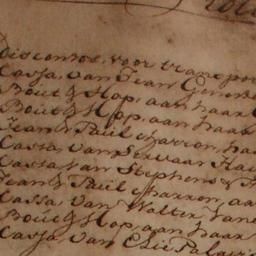 disconto, voor transpor
Cassa, van Jean
Bout & Hop, aan haar
Bout & Hop, aan haar
Jean & Paul Charron, ha
Cassa van Servaar
Cassa van Stephens &
Jean & Paul Charron, aa
Cassa, van Walter
Bout & Hop, aan haar
Cassa, van Elie